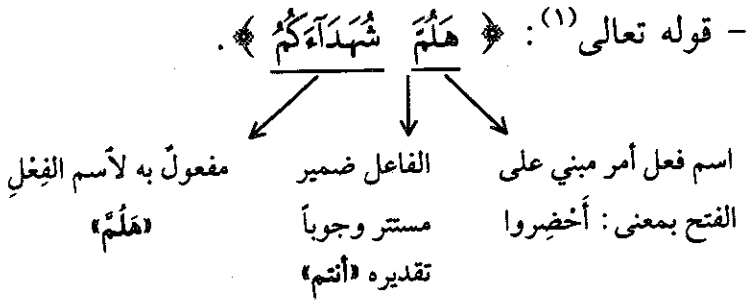 - قوله تعالى(١): ﴿ هَلُمَّ شُهَدَآءَكُمُ ﴾ .
اسم فعل أمر مبني على
الفتح بمعنى : أَحْضِروا
الفاعل ضمير
مستتر وجوباً
تقديره «أنتم»
مفعولٌ به لاٌسم الفِعْلِ
«هَلُمَّ»